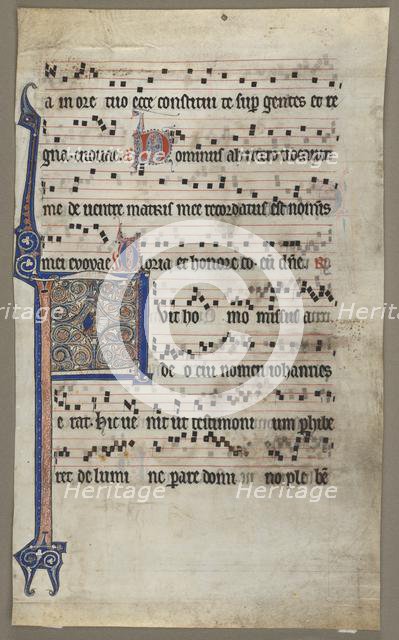 a in ore tuo ecce constitui te sup gentes et re
gna. evovae. Dominus ab utero vocavit
me de ventre matris mee recordatus est nominis
mei evovae Gloria et honore co. eū dn̄e. R
Fuit ho mo missus a
de o cui nomen iohannes
e rat. Hic ve nit ut testimoni um phibe
ret de lumi ne pare domi no plebē
Heritage
Heritage
Heritage
Heritage
Heritage
Heritage
Heritage
Heritage